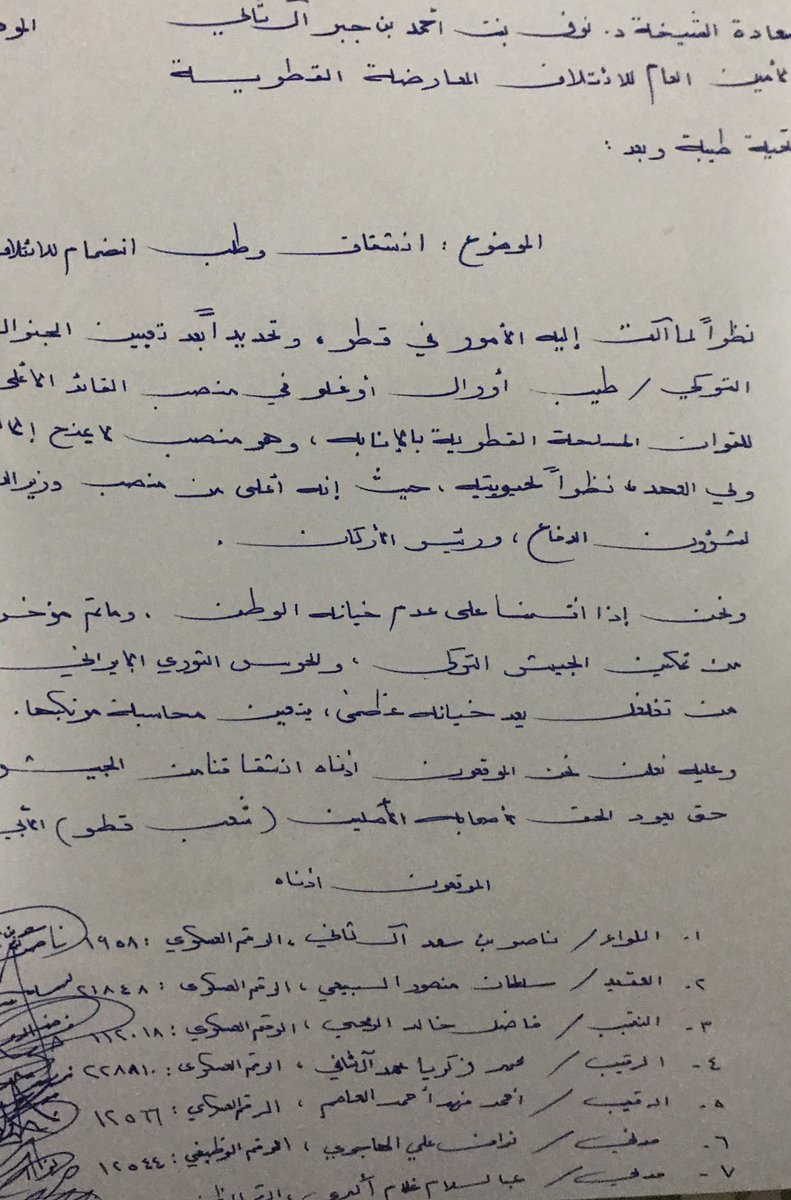 سعادة الشيخة د. نوف بنت أحمد بن جبر آل ثاني
الأمين العام للائتلاف المعارضة القطرية
تحية طيبة وبعد :
الموضوع : انشقاق وطلب انضمام للائتلاف
نظراً لما آلت إليه الأمور في قطر، وتحديداً بعد تعيين الجنرال
التركي / طيب أورال أوغلو في منصب القائد الأعلى
للقوات المسلحة القطرية بالإنابه ، وهو منصب لا يمنح إلا
ولي العهد، نظراً لحيويتيه ، حيث إنه أعلى من منصب وزير
لشؤون الدفاع ، ورئيس الأركان .
ونحن إذا أقسمنا على عدم خيانه الوطن . وماتم مؤخر
من تمكين الجيش التركي ، والحرس الثوري الإيراني
من تغلغل يعد خيانه عظمى ، يتعين محاسبة مرتكبها .
وعليه نعلن نحن الموقعون أدناه انشقاقنا من الجيش
حتى يعود الحق لأصحابه الأصليين ( شعب قطر )
الموقعون أدناه
١. اللواء / ناصر بن سعد آل ثاني ، الرقم العسكري : ١٩٥٨
٢. العقيد / سلطان منصور السبيعي ، الرقم العسكري : ٢١٨٤٨
٣- النقيب / فاضل خالد ، الرقم العسكري : ١١٢٠١٨
٤- الرقيب / محمد زكريا حمد آل ثاني ، الرقم العسكري : ٢٢٨٨١٠
٥. الرقيب / احمد فهد أحمد العاصم ، الرقم العسكري : ١٢٥٦٦
٦. مدني / نواف علي ، الرقم الوظيفي : ١٢٥٤٤
٧- مدني / عبدالسلام غلام